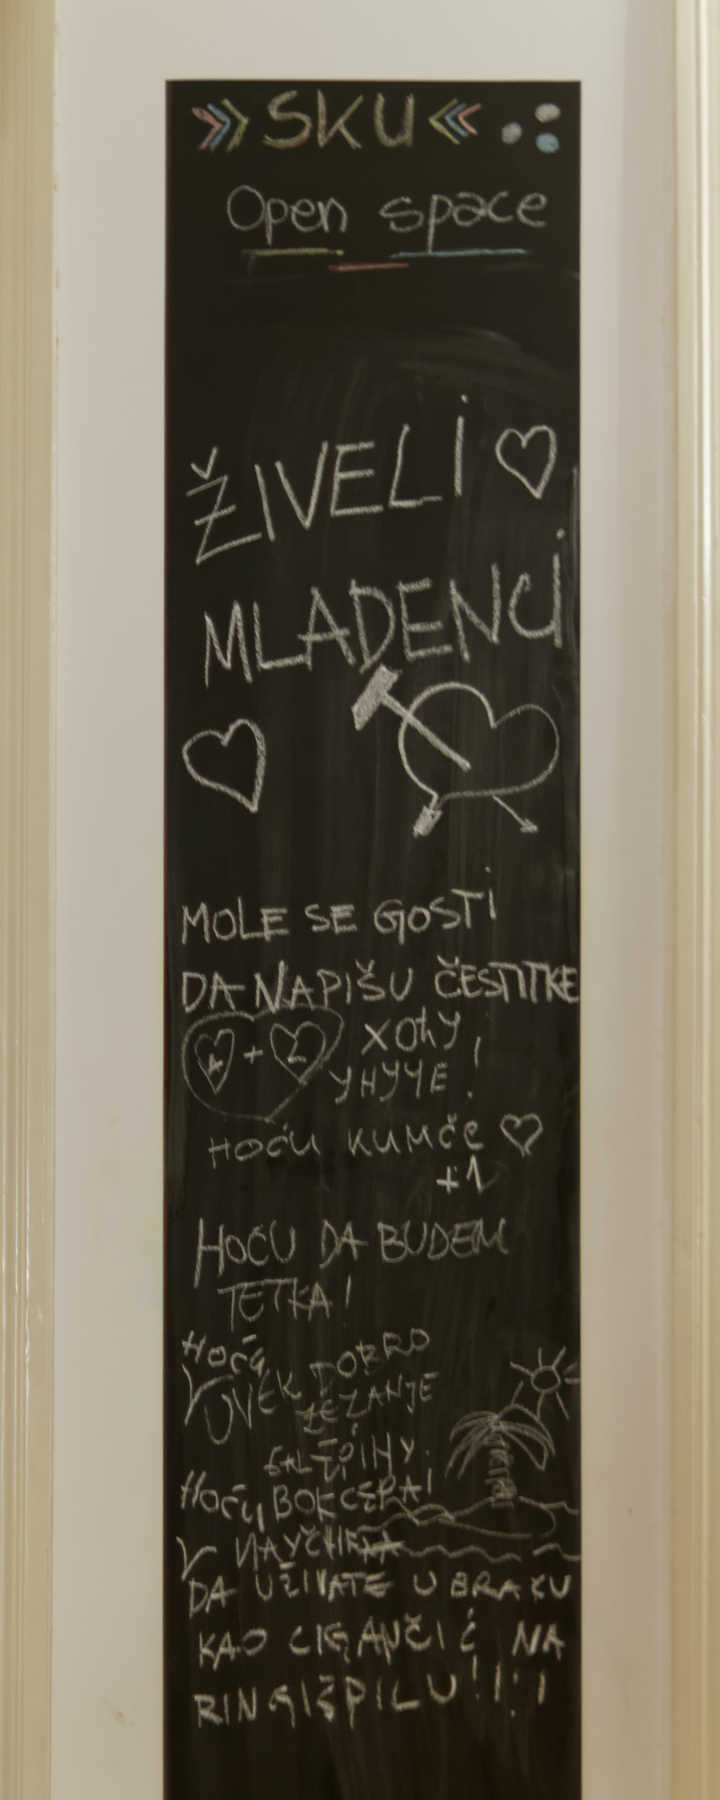 SKU
Open space
ŽIVELI
MLADENCI
MOLE SE GOSTI
DA NAPIŠU ČESTITKE
+ ХОЋУ
УНУЧЕ!
HOĆU KUMČE
+1
HOĆU DA BUDEM
TETKA!
HOĆU
UVEK DOBRO
ZEZANJE
HOĆU BOKCERA!
DA UŽIVATE U BRAKU
KAO CIGANČIĆ NA
RINGIŠPILU!!!!